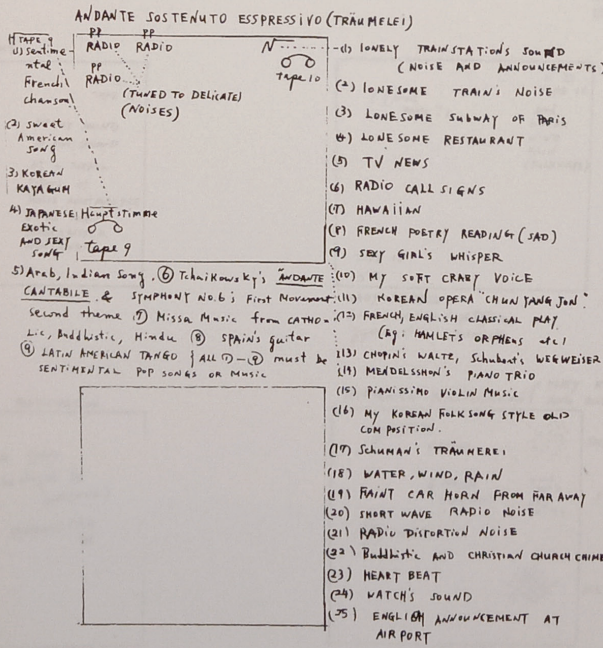 ANDANTE SOSTENUTO ESSPRESSIVO (TRÄUMELEI)
TAPE 9
1) Sentime-
ntal
French
chanson
(2) Sweet
American
SONG
3) KOREAN
KAYAGUM
4) JAPANESE
EXOTIC
AND SEXY
SONG
PP PP
RADIO RADIO
PP
RADIO
(TUNED TO DELICATE)
(NOISES)
N
tape 10
Hauptstimme
tape 9
5) Arab, Indian Song. (6) Tchaikowsky's ANDANTE
CANTABILE & SYMPHONY NO.6; First Movement
second theme (7) Missa Music from CATHO-
Lic, Buddhistic, Hindu (8) SPAIN'S guitar
(9) LATIN AMERICAN TANGO } ALL (1)-(9) must be
SENTIMENTAL POP SONGS OR MUSIC
(1) LONELY TRAINSTATIONS SOUND
(NOISE AND ANNOUNCEMENTS)
(2) LONESOME TRAIN'S NOISE
(3) LONESOME SUBWAY OF PARIS
(4) LONESOME RESTAURANT
(5) TV NEWS
(6) RADIO CALL SIGNS
(7) HAWAIIAN
(8) FRENCH POETRY READING (SAD)
(9) SEXY GIRL'S WHISPER
(10) MY SOFT CRABY VOICE
(11) KOREAN OPERA "CHUN YANG JON"
(12) FRENCH, ENGLISH CLASSICAL PLAY
(Eg: HAMLET'S ORPHEUS etc)
(13) CHOPIN'S WALTZ, Schubert's WEGWEISER
(14) MENDELSSHON'S PIANO TRIO
(15) PIANISSIMO VIOLIN MUSIC
(16) MY KOREAN FOLKSONG STYLE OLD
COMPOSITION.
(17) SCHUMAN'S TRÄUMEREI
(18) WATER, WIND, RAIN
(19) FAINT CAR HORN FROM FAR AWAY
(20) SHORT WAVE RADIO NOISE
(21) RADIO DISTORTION NOISE
(22) Buddhistic AND CHRISTIAN CHURCH CHIME
(23) HEART BEAT
(24) WATCH'S SOUND
(25) ENGLISH ANNOUNCEMENT AT
AIRPORT